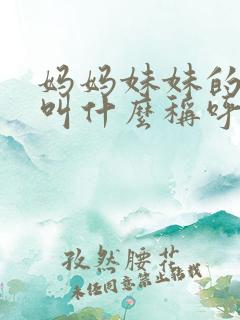 妈妈妹妹的
叫什麼稱呼
孜然腰花
未经同意禁止转载